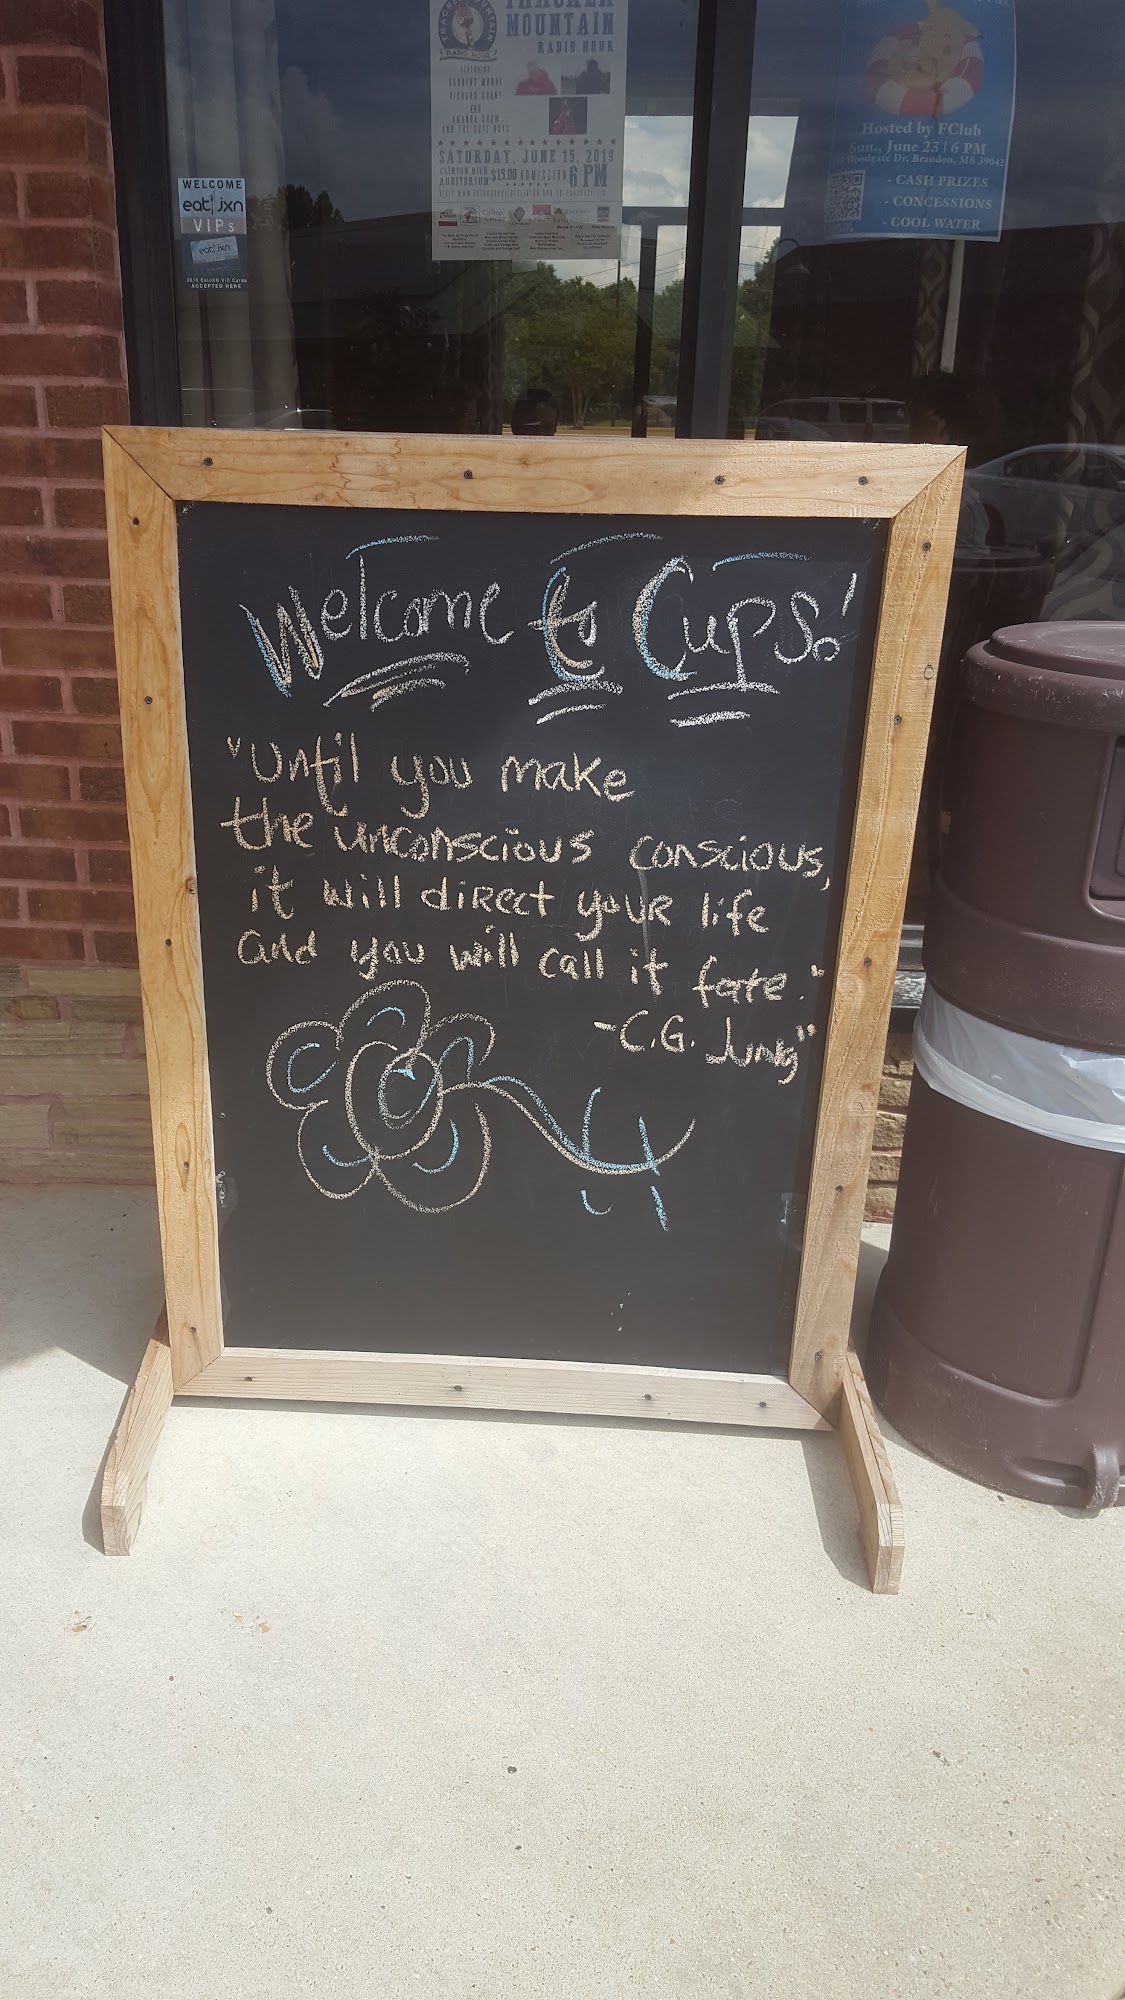 THACKER
MOUNTAIN
RADIO HOUR
RADIO HOUR
FEATURING
AND
SATURDAY, JUNE 15, 2019
CLINTON HIGH
AUDITORIUM $15.00 ADMISSION 6 PM
Hosted by FClub
Sun., June 23 | 6 PM
Woodgate Dr, Brandon, MS 39042
- CASH PRIZES
- CONCESSIONS
- COOL WATER
WELCOME
eat jxn
VIPs
eat jxn
2019 EatJXN VIP Cards
ACCEPTED HERE
Welcome to Cups!
"Until you make
the unconscious conscious,
it will direct your life
and you will call it fate."
-C.G. Jung"